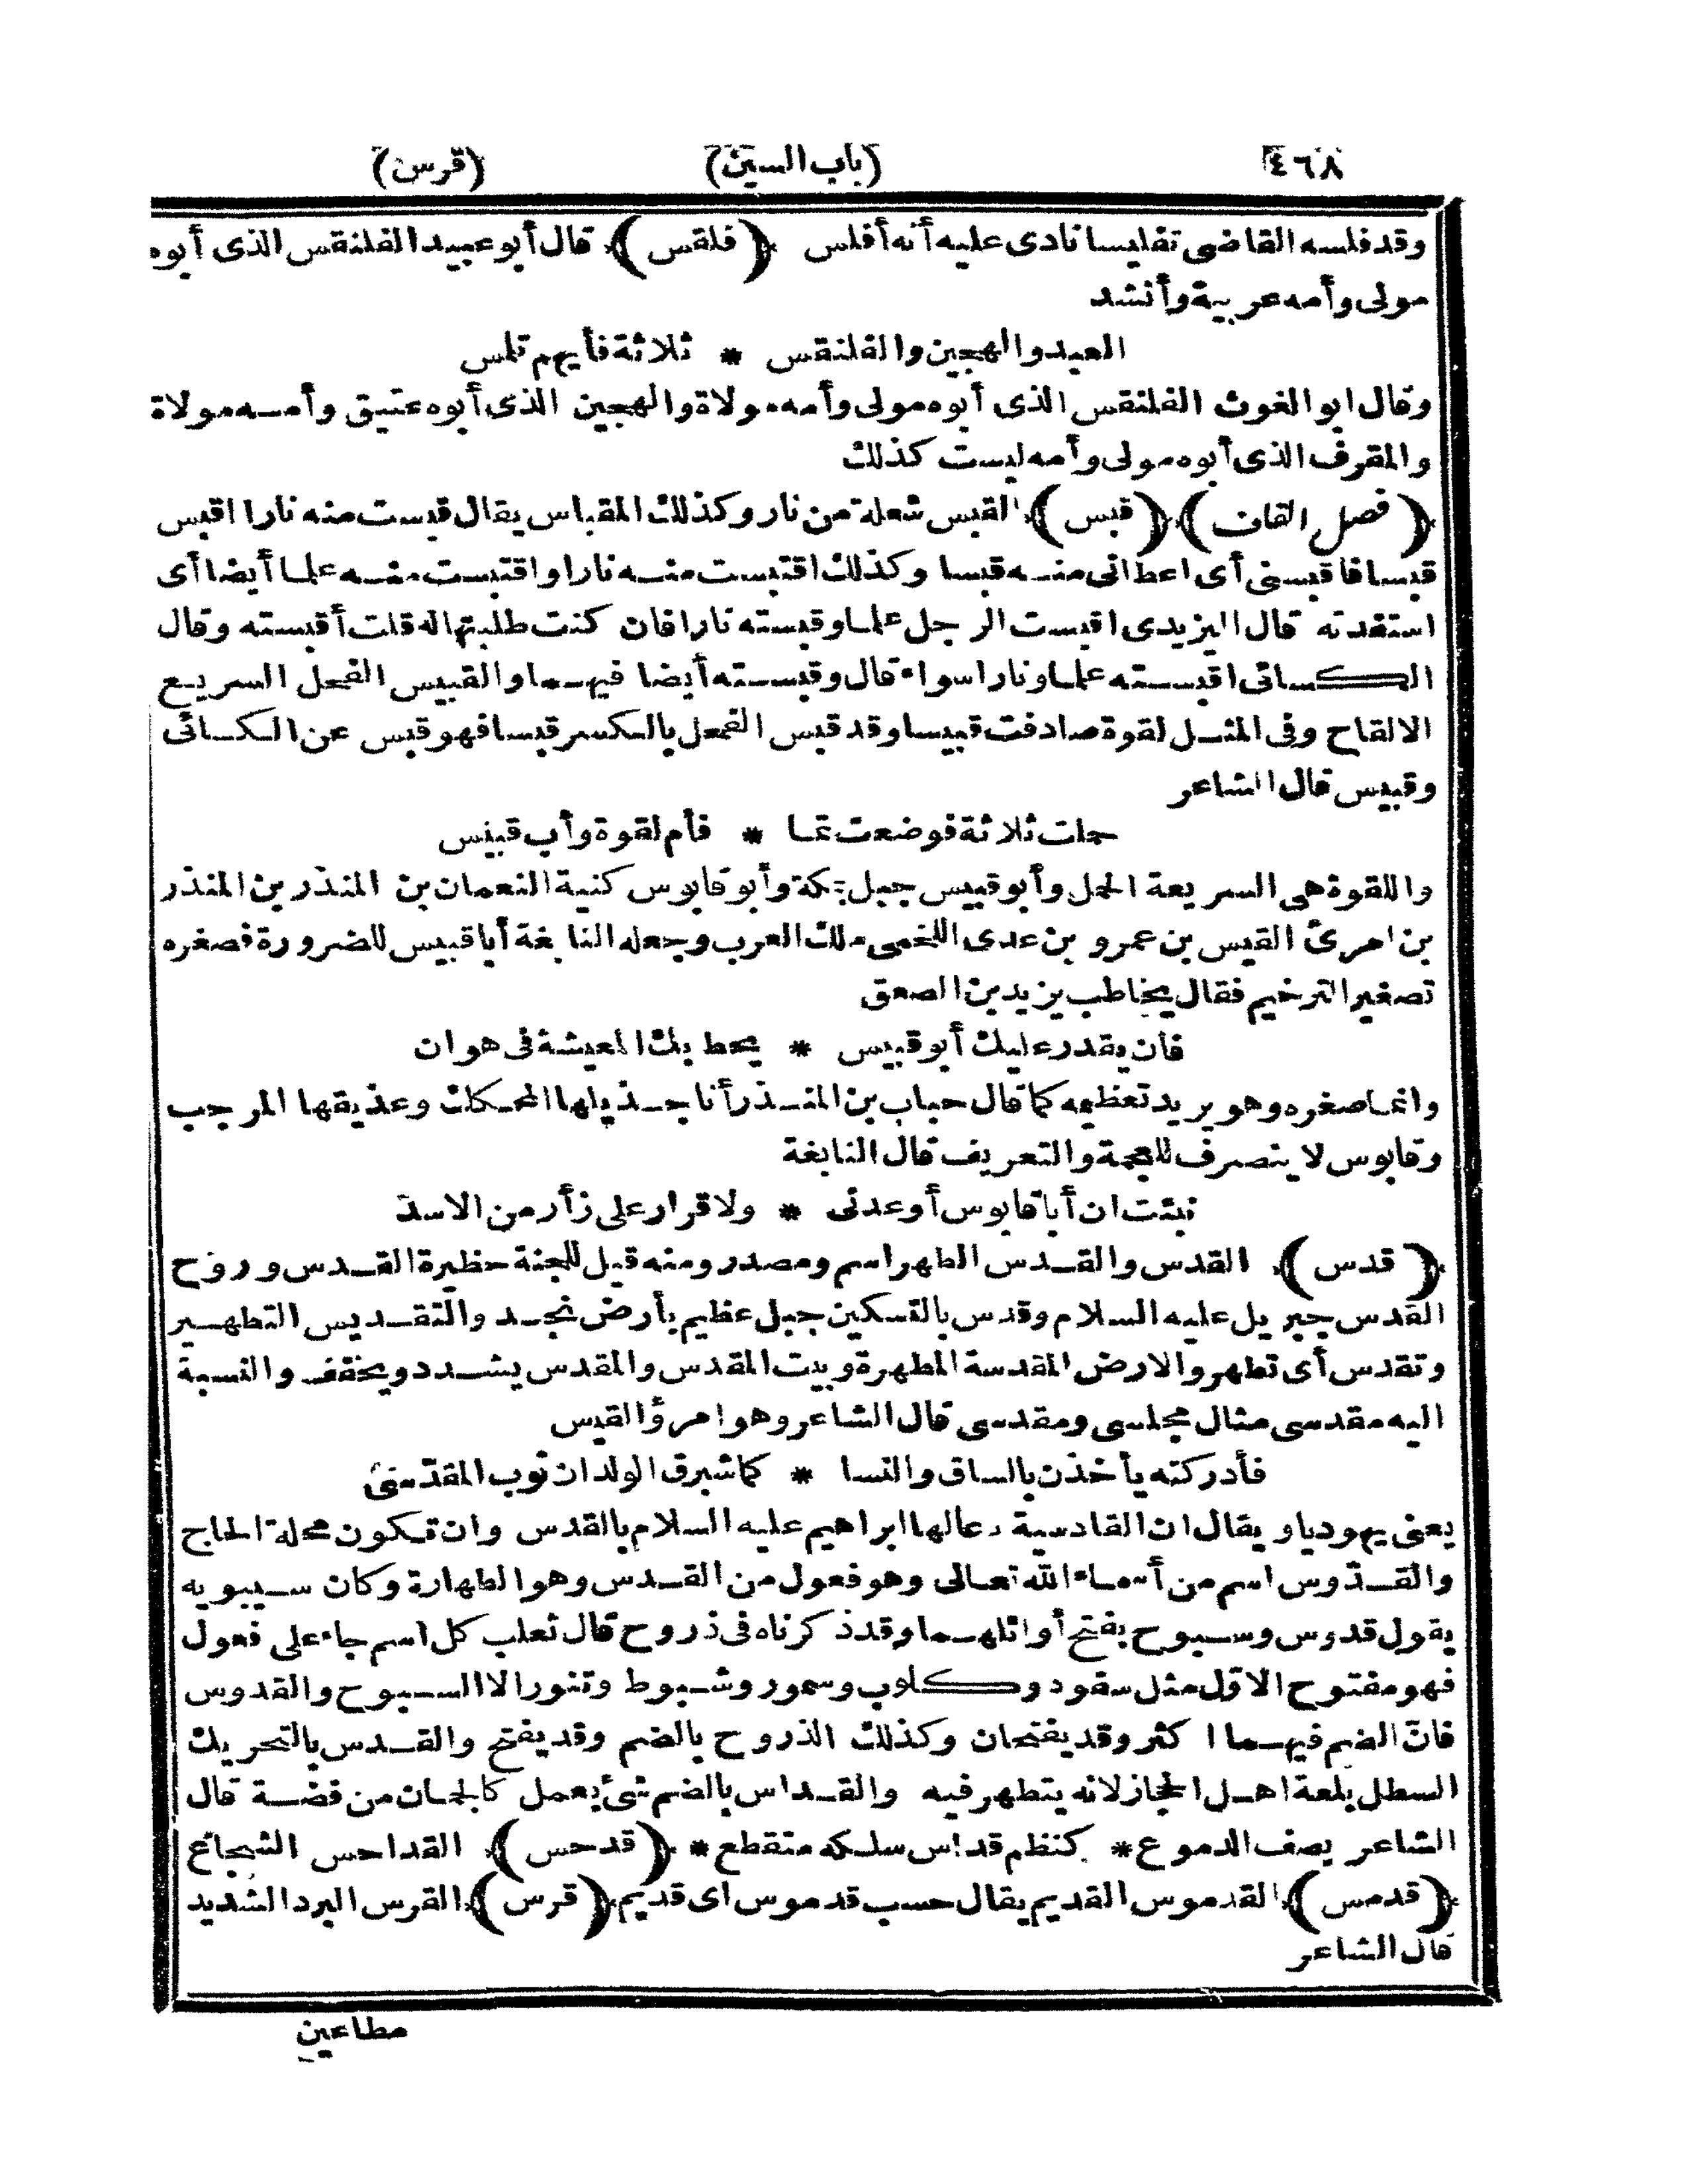 ٤٦٨ (باب السين) (قرس)
وقد فلسه القاضى تفليسا نادى عليه أنه أفلس (فلقس) قال أبو عبيد الفلنقس الذى أبوه
مولى وأمه عربية وأنشد
العبد والهجين والفلنقس * ثلاثة فأيهم تلمس
وقال ابو الغوث الفلنقس الذى أبوه مولى وأمه مولاة والهجين الذى أبوه عتيق وأمه مولاة
والمقرف الذى أبوه مولى وأمه ليست كذلك
(فصل القاف) (قبس) القبس شعلة من نار وكذلك المقباس يقال قبست منه نارا اقبس
قبسا فاقبسنى أى اعطانى منه قبسا وكذلك اقتبست منه نارا واقتبست منه علما أيضا أى
استفدته قال اليزيدى اقبست الرجل علما وقبسته نارا فان كنت طلبتها له قلت أقبسته وقال
الكسائى اقبسته علما ونارا سواء قال وقبسته أيضا فيهما والقبيس الفحل السريع
الالقاح وفى المثل لقوة صادفت قبيسا وقد قبس الفحل بالكسر قبسا فهو قبس عن الكسائى
وقبيس قال الشاعر
حملت ثلاثة فوضعت تما * فأم لقوة وأب قبيس
واللقوة هى السريعة الحمل وأبو قبيس جبل بمكة وأبو قابوس كنية النعمان بن المنذر بن المنذر
بن امرئ القيس بن عمرو بن عدى اللخمى ملك العرب وجعله النابغة أبا قبيس للضرورة فصغره
تصغير الترخيم فقال يخاطب يزيد بن الصعق
فان يقدر عليك أبو قبيس * يحط بك المعيشة فى هوان
وانما صغره وهو يريد تعظيمه كما قال حباب بن المنذر أنا جذيلها المحكك وعذيقها المرجب
وقابوس لا ينصرف للعجمة والتعريف قال النابغة
نبئت ان أبا قابوس أوعدنى * ولا قرار على زأر من الاسد
(قدس) القدس والقدس الطهر اسم ومصدر ومنه قيل للجنة حظيرة القدس وروح
القدس جبريل عليه السلام وقدس بالتسكين جبل عظيم بأرض نجد والتقديس التطهير
وتقدس أى تطهر والارض المقدسة المطهرة وبيت المقدس والمقدس يشدد ويخفف والنسبة
اليه مقدسى مثال مجلسى ومقدسى قال الشاعر وهو امرؤ القيس
فأدركته يأخذن بالساق والنسا * كما شبرق الولدان ثوب المقدّسىّ
يعنى يهوديا ويقال ان القادسية دعا لها ابراهيم عليه السلام بالقدس وان تكون محلة الحاج
والقدّوس اسم من أسماء الله تعالى وهو فعول من القدس وهو الطهارة وكان سيبويه
يقول قدوس وسبوح بفتح أوائلهما وقد ذكرناه فى ذروح قال ثعلب كل اسم جاء على فعول
فهو مفتوح الاوّل مثل سفود وكلوب وسمور وشبوط وتنور الا السبوح والقدوس
فانّ الضم فيهما اكثر وقد يفتحان وكذلك الذروح بالضم وقد يفتح والقدس بالتحريك
السطل بلغة اهل الحجاز لانه يتطهر فيه والقداس بالضم شئ يعمل كالجمان من فضة قال
الشاعر يصف الدموع * كنظم قداس سلكه متقطع * (قدحس) القداحس الشجاع
(قدمس) القدموس القديم يقال حسب قدموس اى قديم (قرس) القرس البرد الشديد
قال الشاعر
مطاعين